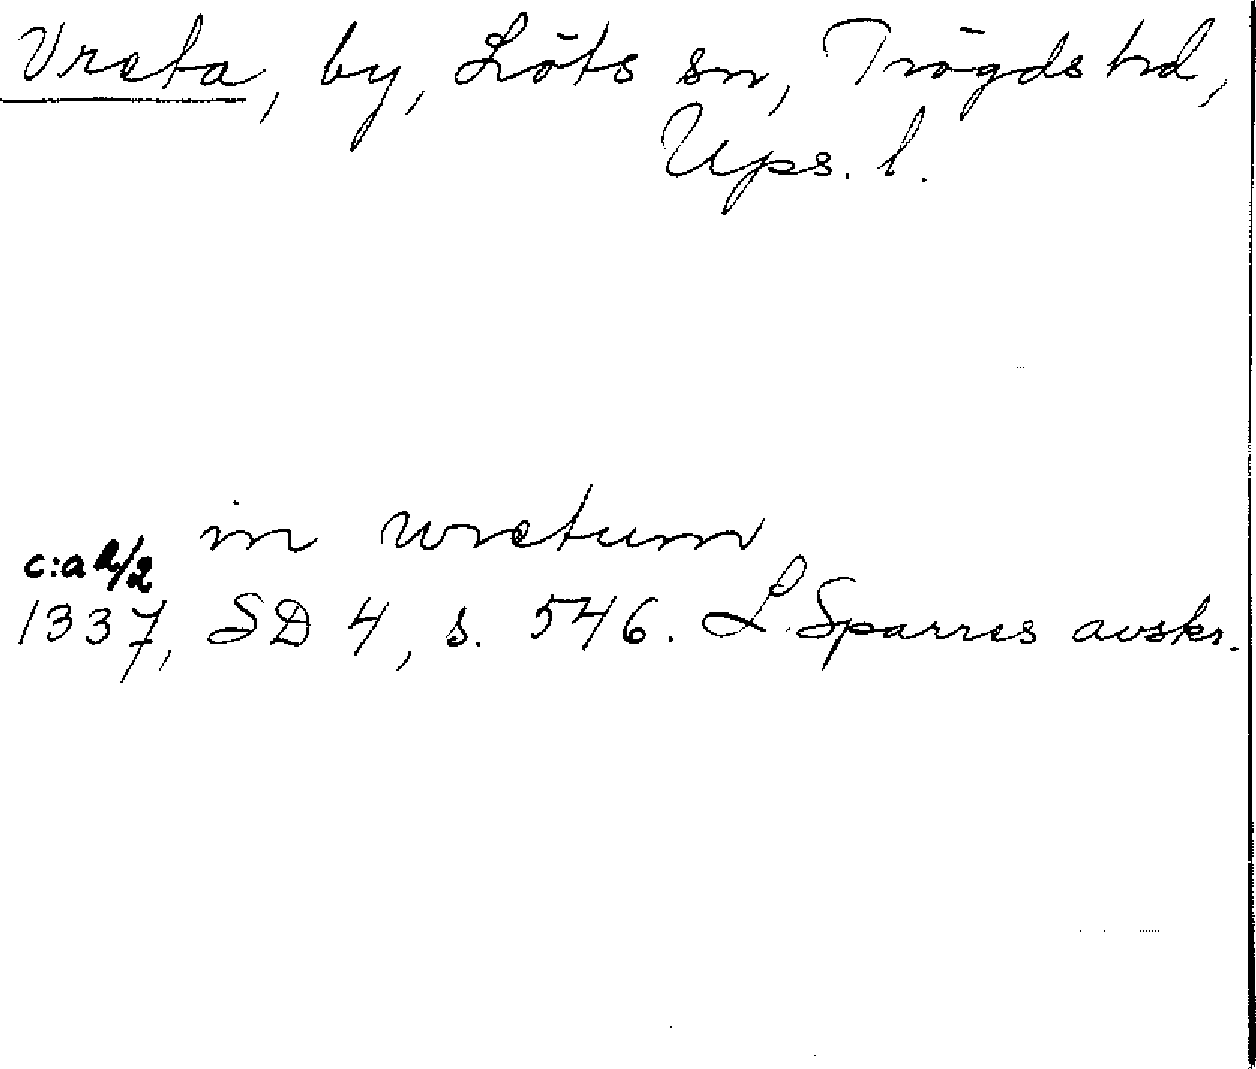 Vreta, by, Löts sn, Trögds hd,
Ups. l.
in wretum
c:a 2/2
1337, SD 4, s. 546. L. Sparres avskr.